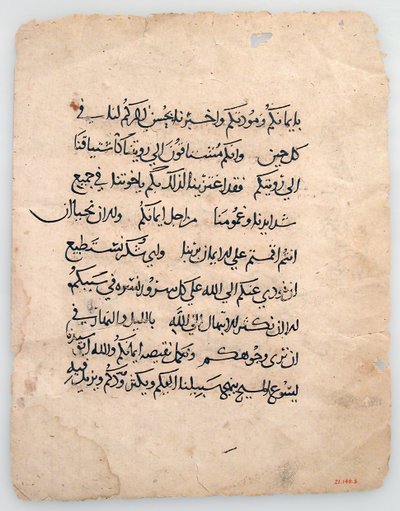 بايمانكم ومودتكم واخبرنا بحسن ذكركم لنا في
كل حين وانكم مشتاقون الي رويتنا كاشتياقنا
الي رويتكم فقد اعتزينا لذلك بكم ياخوتنا في جميع
شدايدنا وغمومنا من اجل ايمانكم والان نحيا ان
انتم اقمتم علي الايمان بربنا واي شكر نستطيع
ان نودي عنكم الي الله علي كل سرور نسره في سببكم
الا ان نكثر الابتهال الي الله بالليل والنهار في
ان نري وجوهكم ونكمل نقيصه ايمانكم والله
يسوع المسيح ينهج سبيلنا اليكم ويكثر ودكم ويزيد فيه
21.148.3